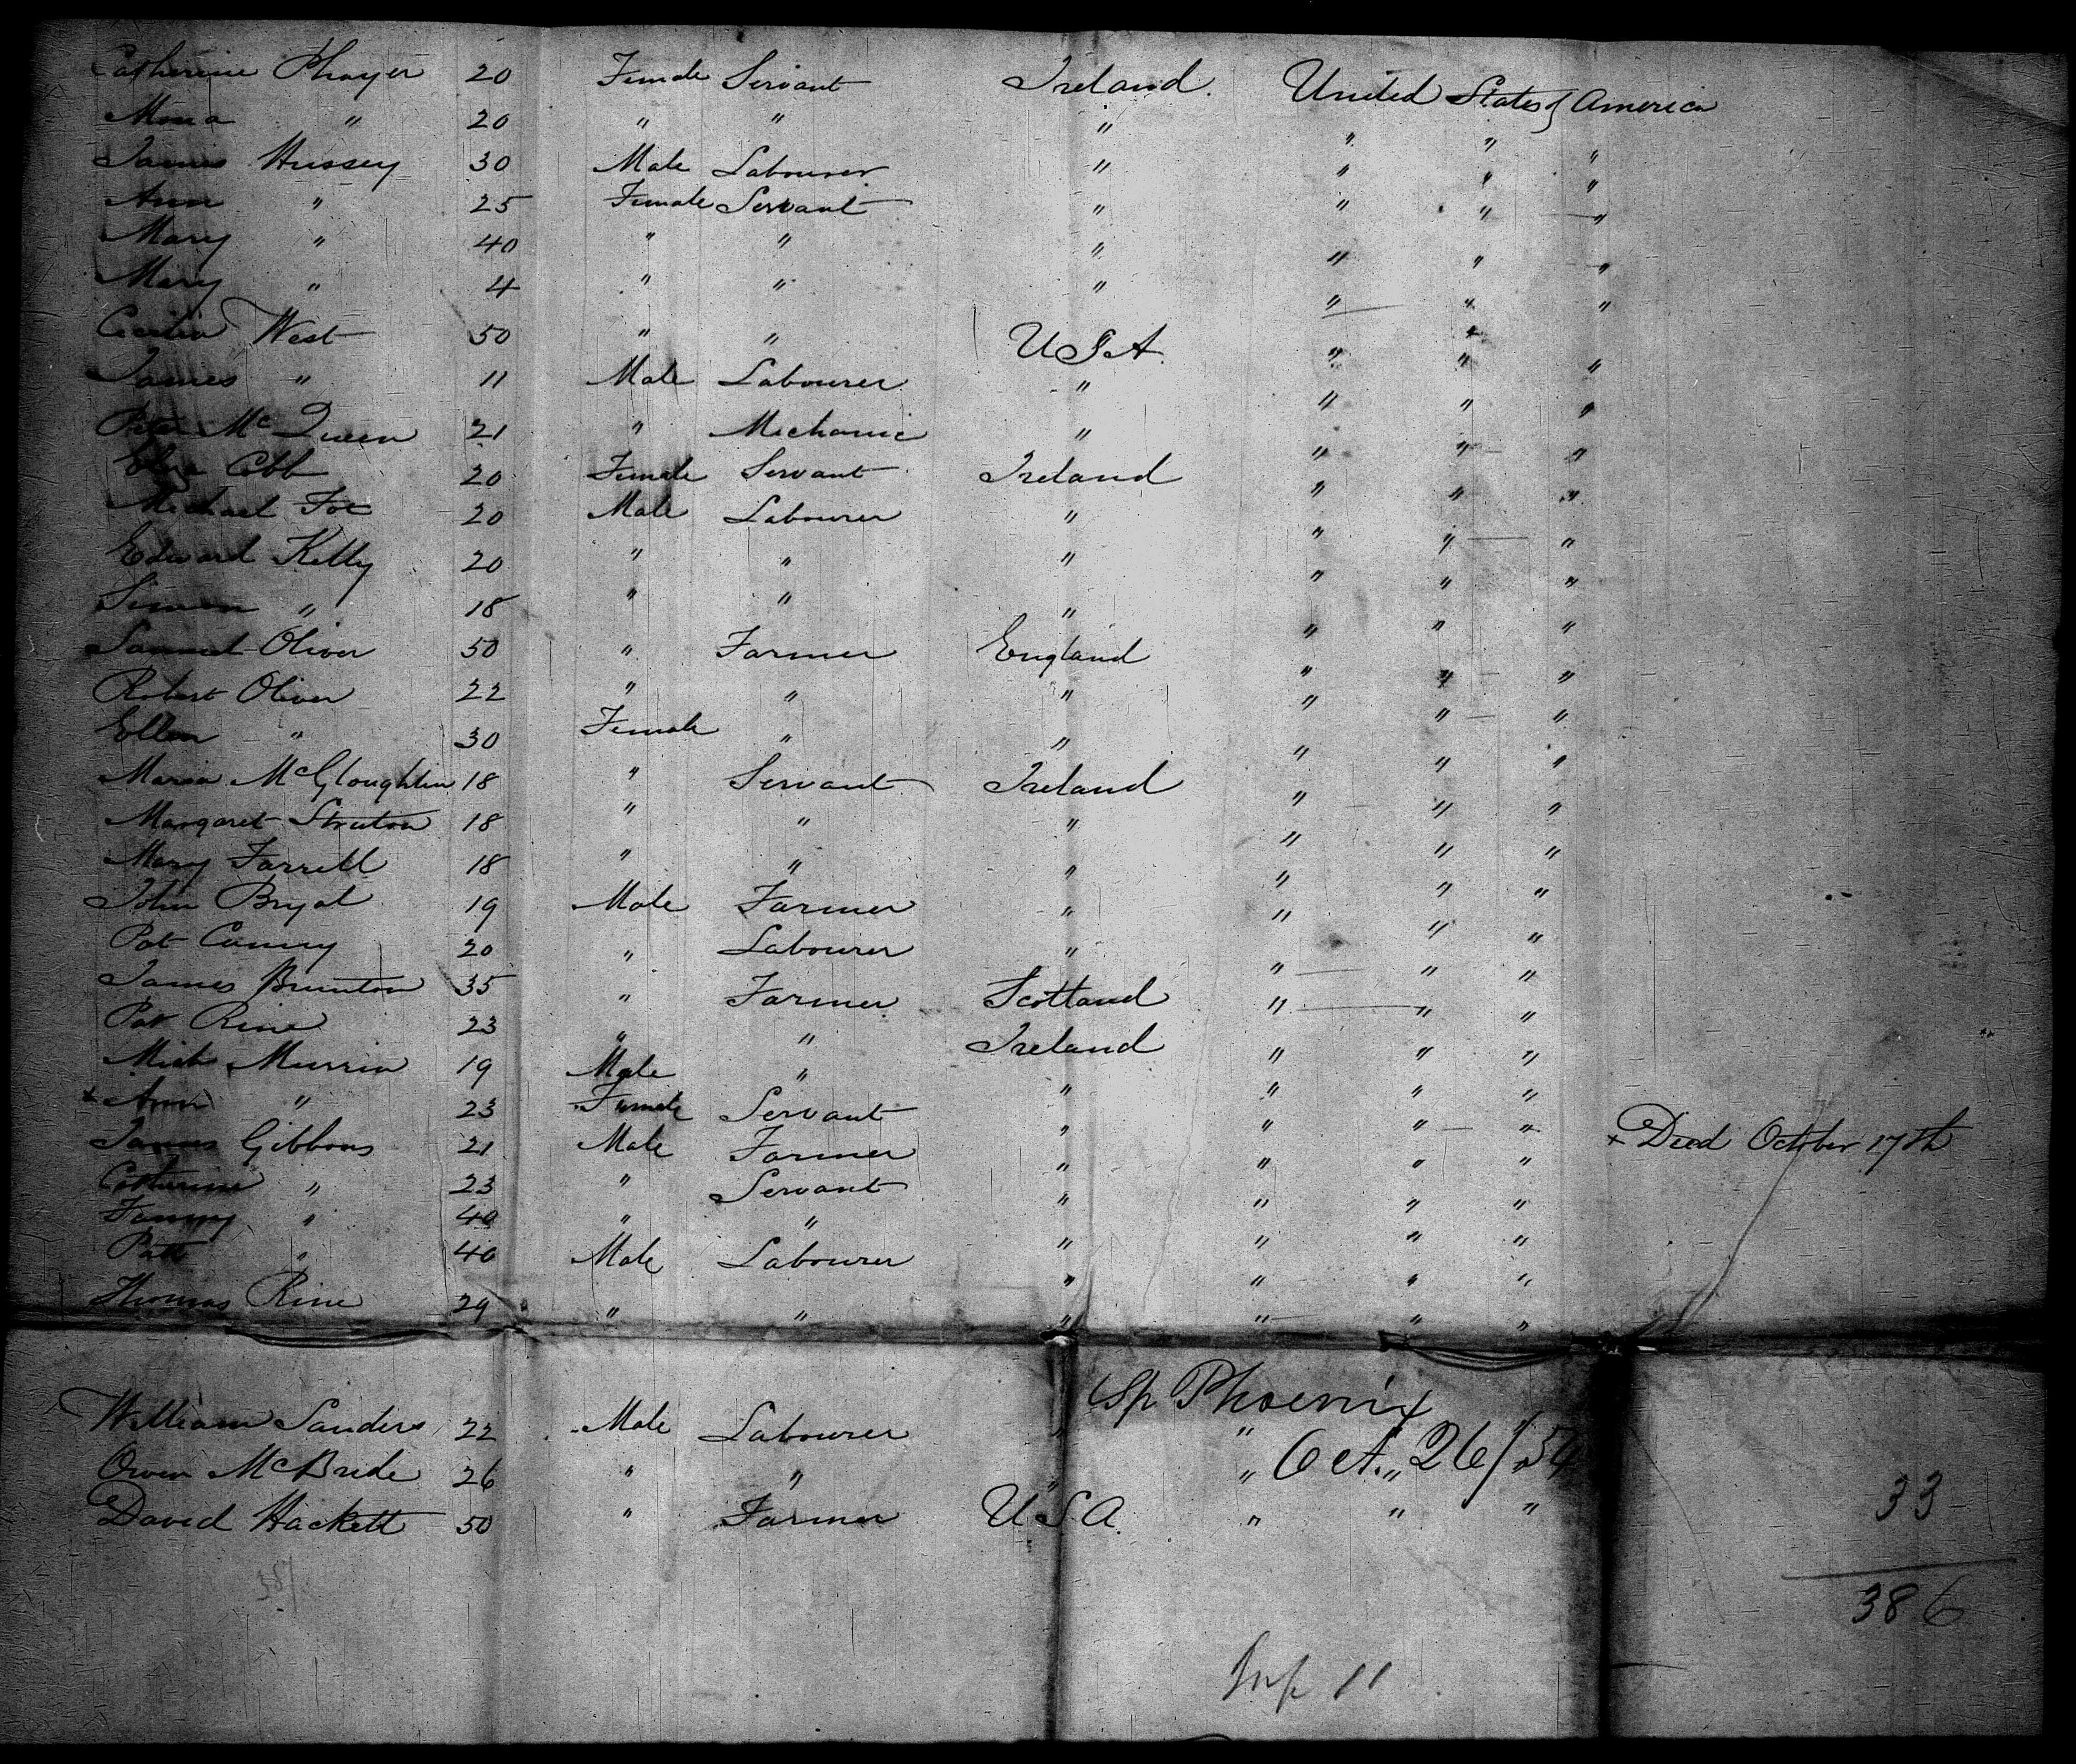 Catherine Phayer 20 Female Servant Ireland United States of America
Mona " 20 " " " " " "
James Hussey 30 Male Labourer " " " "
Ann " 25 Female Servant " " " "
Mary " 40 " " " " " "
Mary " 4 " " " " " "
Cecilia West 50 " " USA " " "
James " 11 Male Labourer " " " "
Peter McQueen 21 " Mechanic " " " "
Cobb 20 Female Servant Ireland " " "
Michael Fox 20 Male Labourer " " " "
Edward Kelly 20 " " " " " "
Simon " 18 " " " " " "
Samuel Oliver 50 " Farmer England " " "
Robert Oliver 22 " " " " " "
Ellen " 30 Female " " " " "
Maria McGloughlin 18 " Servant Ireland " " "
Margaret Struton 18 " " " " " "
Mary Farrell 18 " " " " " "
John Bryal 19 Male Farmer " " " "
Pat Canny 20 " Labourer " " " "
James Brunton 35 " Farmer Scotland " " "
Pat Rine 23 " " Ireland " " "
Mich Murrin 19 Male " " " " "
x Ann " 23 Female Servant " " " " x Died October 17th
James Gibbons 21 Male Farmer " " " "
Catherine " 23 " Servant " " " "
Fanny " 40 " " " " " "
Patt " 40 Male Labourer " " " "
Thomas Rine 29 " " " " " "
Sp Phoenix
William Sanders 22 Male Labourer " "
Oct. 26/54
Owen McBride 26 " " " " " "
David Hackett 50 " Farmer USA. " " "
33
386
Inf 11